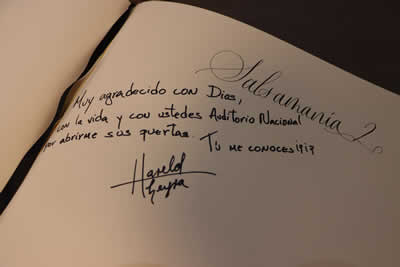 Salsamanía 2
Muy agradecido con Dios,
con la vida y con ustedes Auditorio Nacional
por abrirme sus puertas. Tu me conoces!?!?
Harold